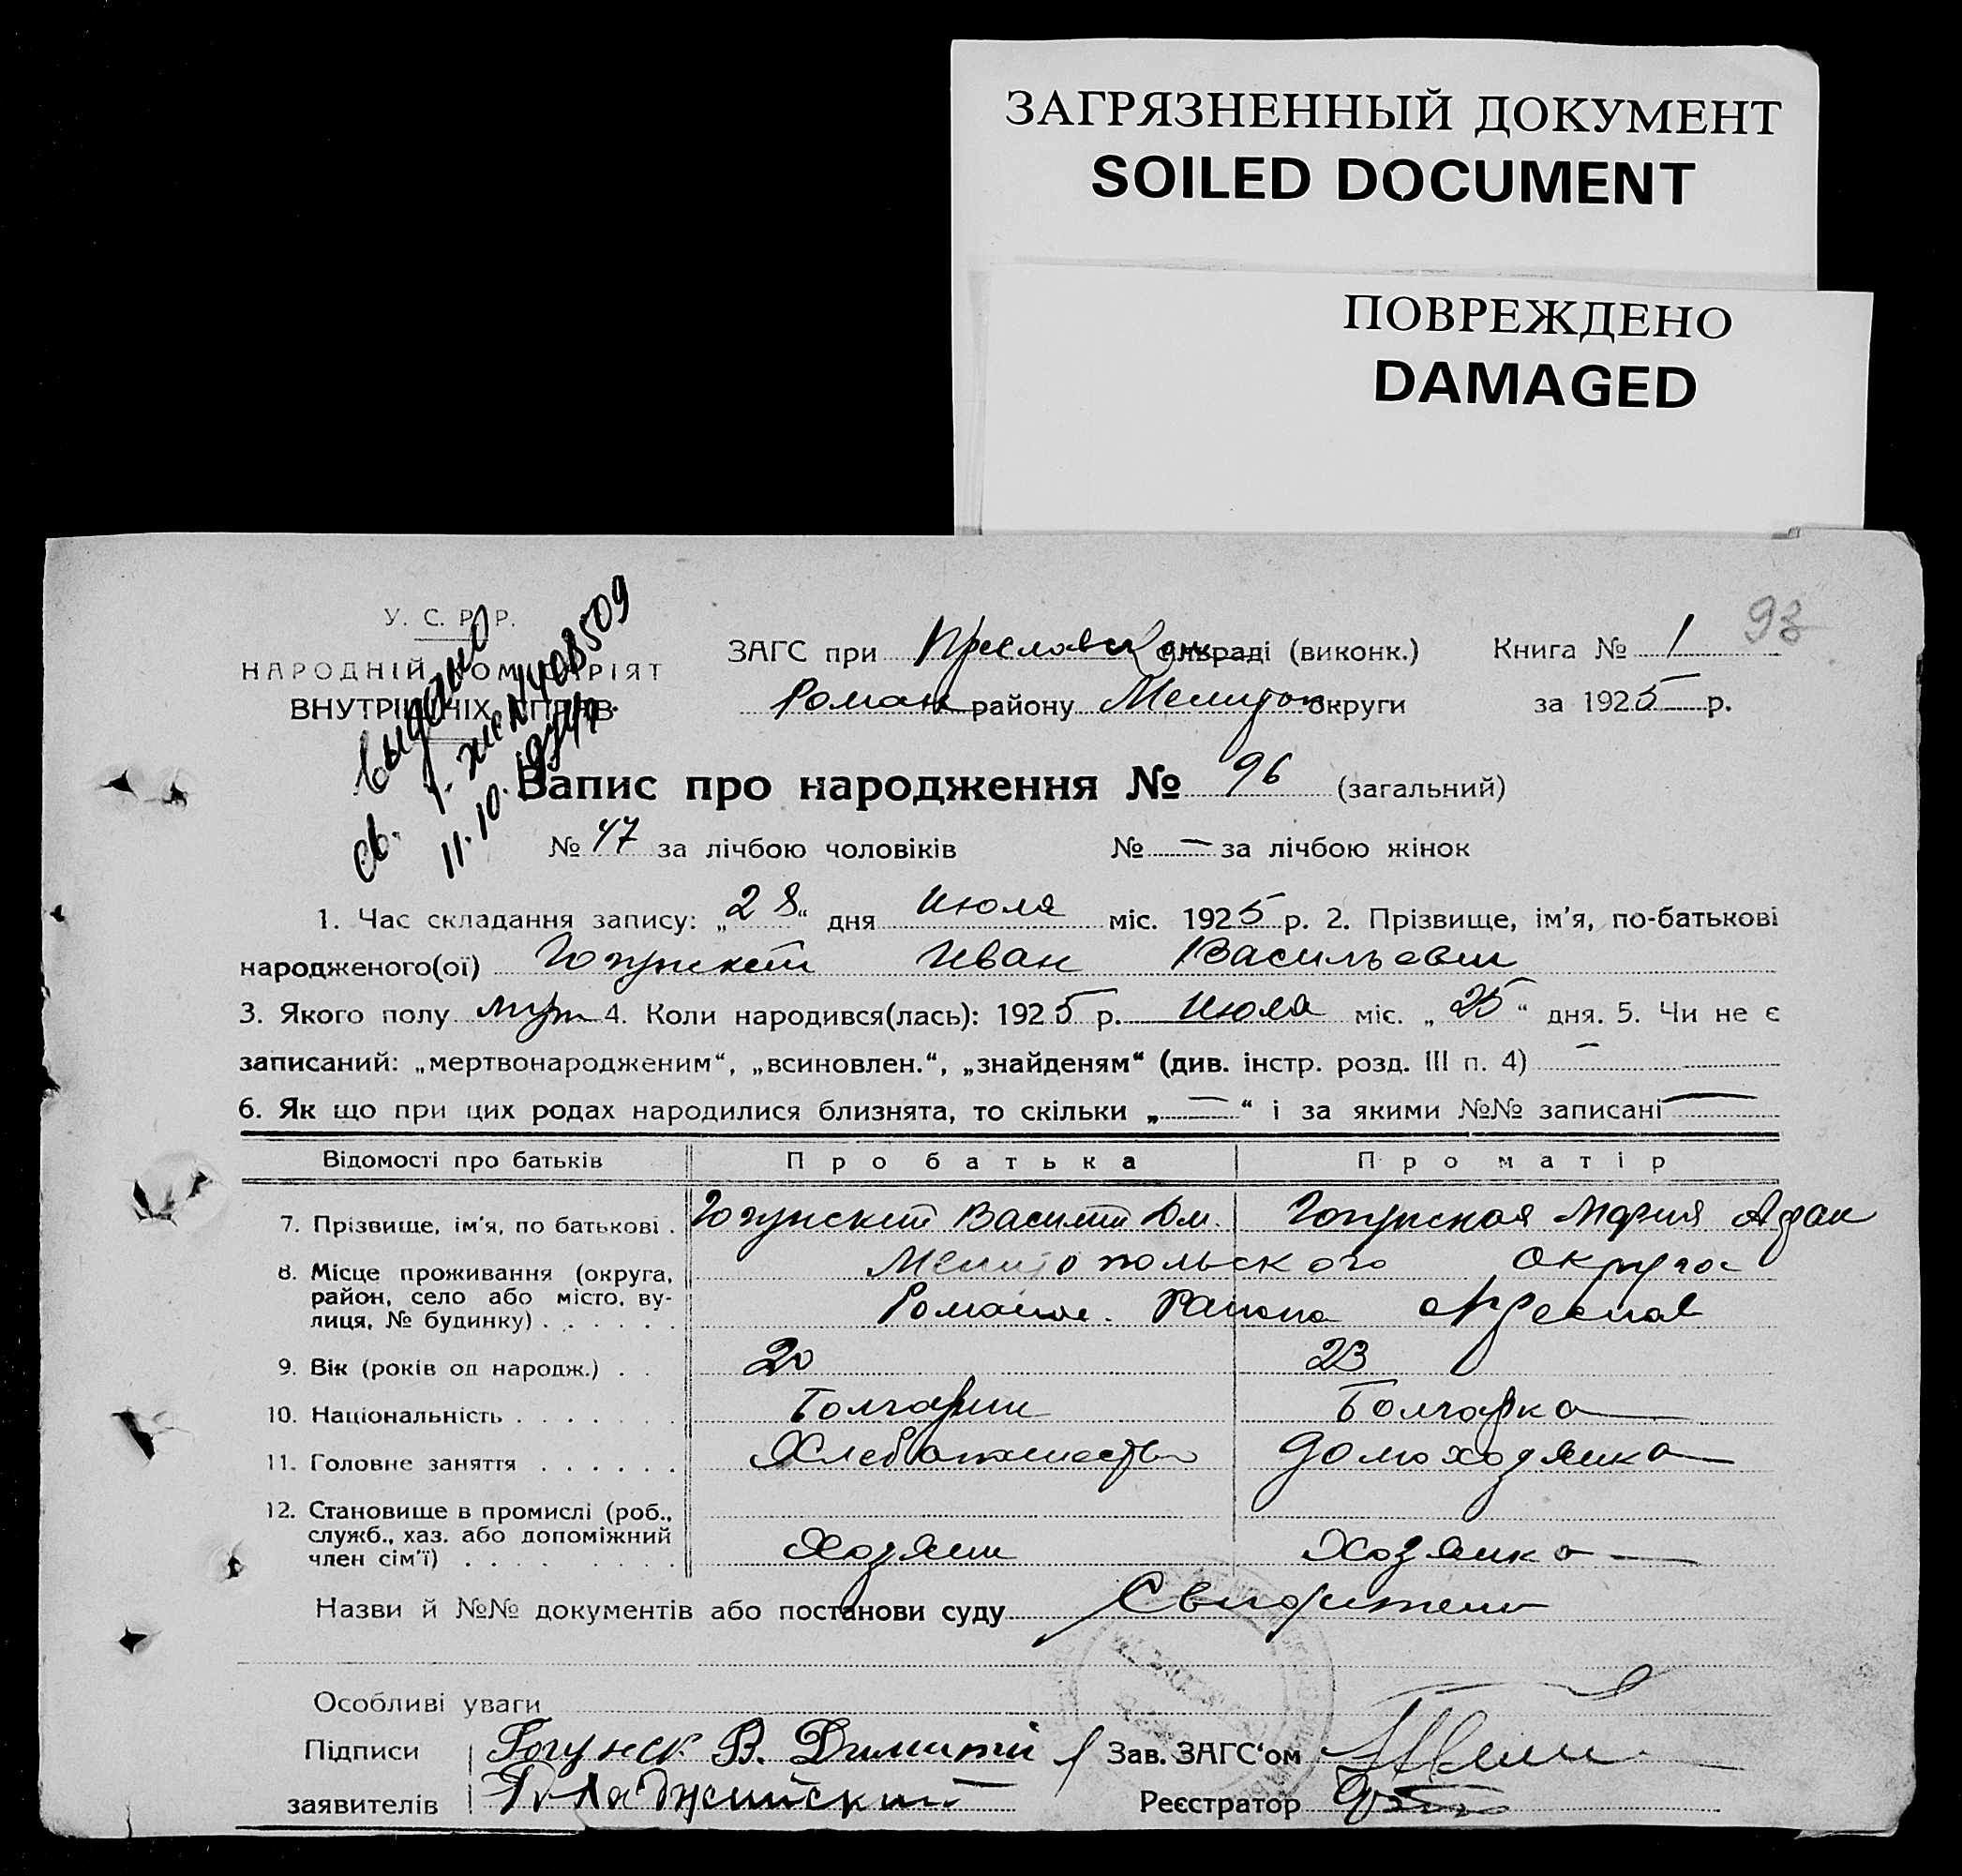 ЗАГРЯЗНЕННЫЙ ДОКУМЕНТ
SOILED DOCUMENT
ПОВРЕЖДЕНО
DAMAGED
93
У. С. Р. Р.
НАРОДНІЙ КОМІСАРІЯТ
ВНУТРІШНІХ СПРАВ
выдано
св. I-жс № 4408509
11.10.1974г.
ЗАГС при Преславск сільраді (виконк.) Книга № 1
Роман району Мелитоп округи за 1925 р.
Запис про народження № 96 (загальний)
№ 47 за лічбою чоловіків № — за лічбою жінок
1. Час складання запису: „28“ дня Июля міс. 1925 р. 2. Прізвище, ім'я, по-батькові
народженого(ої) Гогунский Иван Васильевич
3. Якого полу муж 4. Коли народився(лась): 1925 р. Июля міс. „25“ дня. 5. Чи не є
записаний: „мертвонародженим“, „всиновлен.“, „знайденям“ (див. інстр. розд. III п. 4) —
6. Як що при цих родах народилися близнята, то скільки „—“ і за якими №№ записані —
Відомості про батьків Про батька Про матір
7. Прізвище, ім'я, по батькові . Гогунский Василий Дм. Гогунская Мария Афан
8. Місце проживання (округа, Мелитопольского округа
район, село або місто, ву- Романов. Района с Преслав
лиця, № будинку) . . . . . .
9. Вік (років од народж.) . . 20 23
10. Національність . . . . . . . Болгарин Болгарка
11. Головне заняття . . . . . . Хлебопашество Домохозяйка
12. Становище в промислі (роб.,
служб., хаз. або допоміжний
член сім'ї) . . . . Хозяин Хозяйка
Назви й №№ документів або постанови суду
Особливі уваги
Підписи Гогунск В. Димитрі Зав. ЗАГС'ом
заявителів Реєстратор